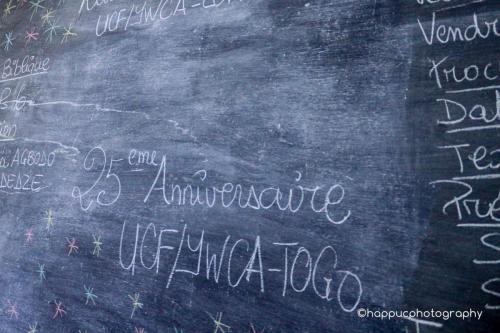 UCF/YWCA-
Biblique
AGBODO
25ème Anniversaire
UCF/YWCA-TOGO
Vendr
Proc
Da
Te
Pré
©happucphotography